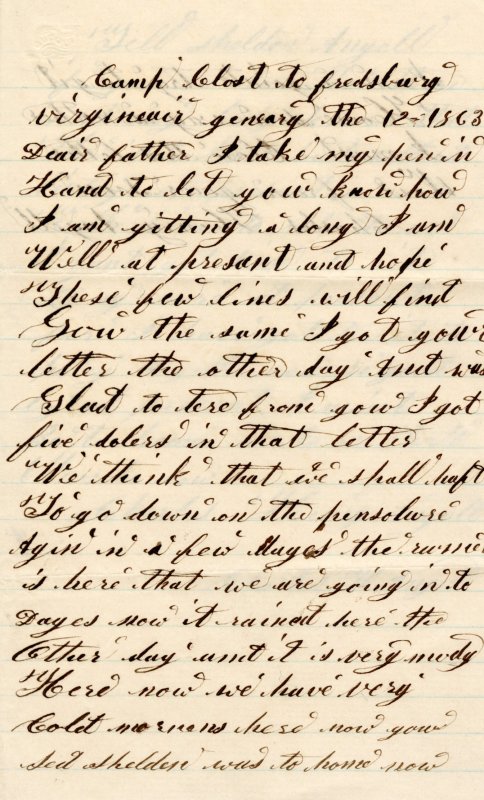 Camp Clost to fredsburg
virgineair geneary the 12-1863
Deair father I take my pen in
Hand to let yow know how
I am gitting a long I am
Well at presant and hope
These few lines will find
Yow the same I got yowr
letter the other day And was
Glad to here from yow I got
five dolers in that letter
We think that we shall haft
To go down on the pensolure
Agin in a few Dayes the rumer
is here that we are going in to
Dayes now it rained here the
Other day and it is very mudy
Here now we have very
Cold mornens here now yow
sed shelden was to home now